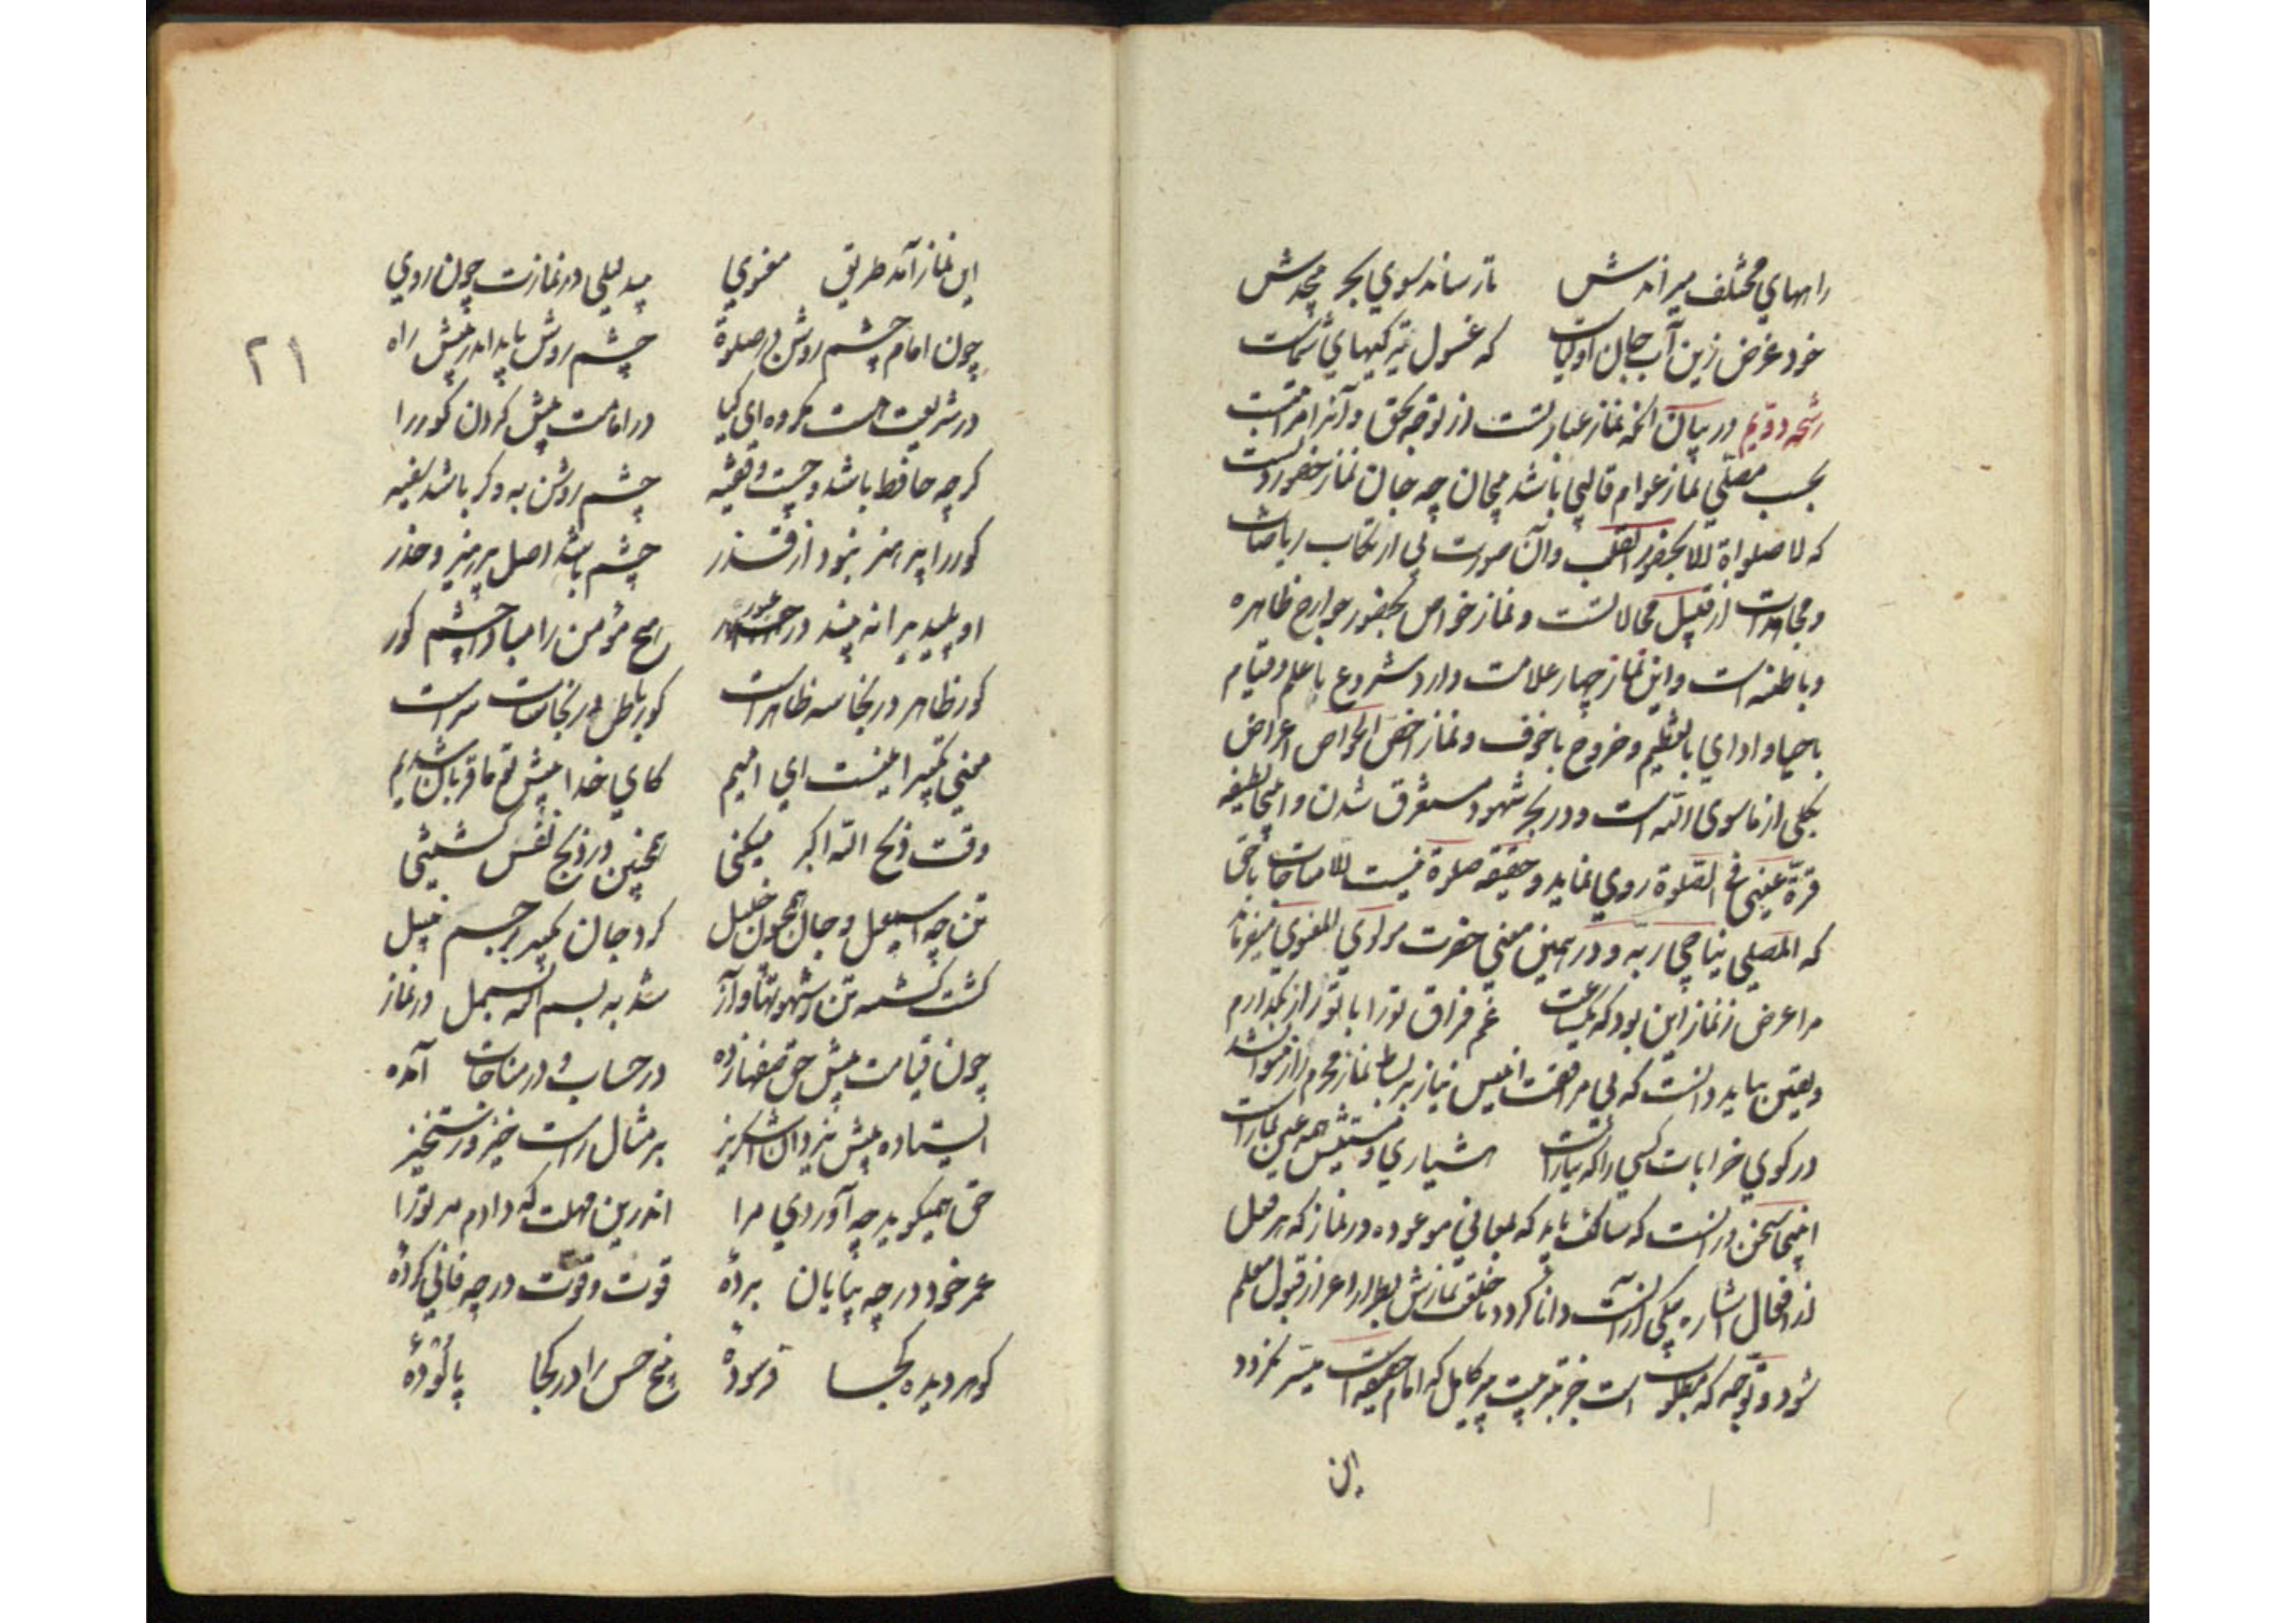 راههای مختلف میراندش تا رساند سوی بحر بیحدش
خود غرض زین آب جان اولیاست که غسول تیرکیهای شماست
رشحه دویم در بیان آنکه نماز عبارتست از توجه بحق و آنرا مراتبست
بحسب مصلی نماز عوام قالبی باشد بیجان چه جان نماز حضور دلست
که لا صلواة الا بحضور القلب و آن صورت بی ارتکاب ریاضات
و مجاهدات از قبیل محالاتست و نماز خواص بحضور جوارح ظاهره
و باطنه است و این نماز چهار علامت دارد شروع با علم و قیام
با حیا و ادای با تعظیم و خروج با خوف و نماز اخص الخواص اعراض
بکلی از ما سوی الله است و در بحر شهود مستغرق شدن و اینجا لطیفه
قرة عینی فی الصلوة روی نماید و حقیقه صلوة نیست الا مناجات با حق
که المصلی یناجی ربه و در همین معنی حضرت مولوی المعنوی میفرماید
مرا غرض ز نماز این بود که یکساعت غم فراق تو را با تو راز بگذارم
و یقین بباید دانست که بی مرافقت انیس نیاز بر بساط نماز محرم راز نتوان شد
در کوی خرابات کسی را که نیازست هشیاری و مستیش همه عین نمازست
اینجا سخن در آنست که سالک باید که بمعانی موعوده در نماز که هر فعل
از افعال اشاره بیکی از آنست دانا کردد تا خلقت نمازش بطراز اعزاز قبول معلم
شود و توجه که مطلوب است جز بتربیت پیر کامل که امام حقیقه است میسر نکردد
این
این نماز آمد طریق معنوی بیدلیلی در نمازت چون روی
چون امام چشم روشن در صلوة چشم روشن باید اندر پیش راه
در شریعت هست مکروه ای کیا در امامت پیش کردن کور را
کرچه حافظ باشد و چست و فقیه چشم روشن به وکر باشد سفیه
کور را پرهیز نبود از قذر چشم باشد اصل پرهیز و حذر
او پلیدیرا نه بیند در عبور هیچ مؤمن را مبادا چشم کور
کور ظاهر در نجاسه ظاهرست کور باطن در نجاسات سرست
معنی تکبیر اینست ای امیم کای خدا پیش تو ما قربان شدیم
وقت ذبح الله اکبر میکنی همچنین در ذبح نفس کشتنی
تن چه اسمعیل و جان همچون خلیل کرد جان تکبیر بر جسم نبیل
کشت کشته تن ز شهوتها و آز شد به بسم الله بسمل در نماز
چون قیامت پیش حق صفها زده در حساب و در مناجات آمده
ایستاده پیش یزدان اشکریز بر مثال راست خیز رستخیز
حق همیکوید چه آوردی مرا اندرین مهلت که دادم مر تو را
عمر خود در چه بپایان بردهٔ قوت و قوت در چه فانی کردهٔ
کوهر دیده کجا فرسودهٔ پنج حس را در کجا پالودهٔ
۲۱